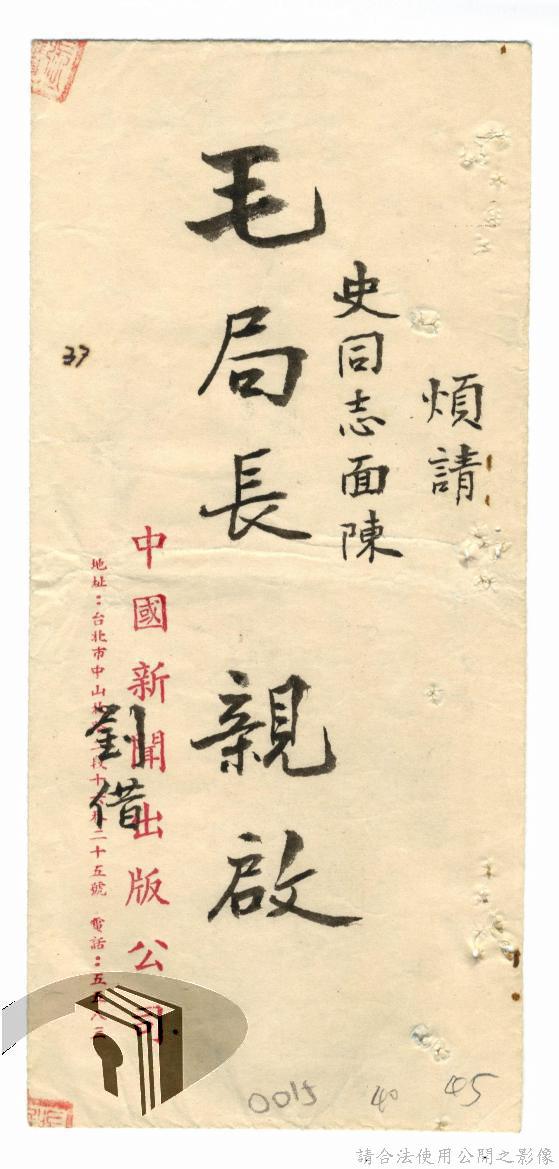 煩請
史同志面陳
毛局長 親啟
中國新聞出版公司
劉借
地址：台北市中山北 二段十 二十五號 電話：五五八三
37
0015
40
45
請合法使用公開之影像